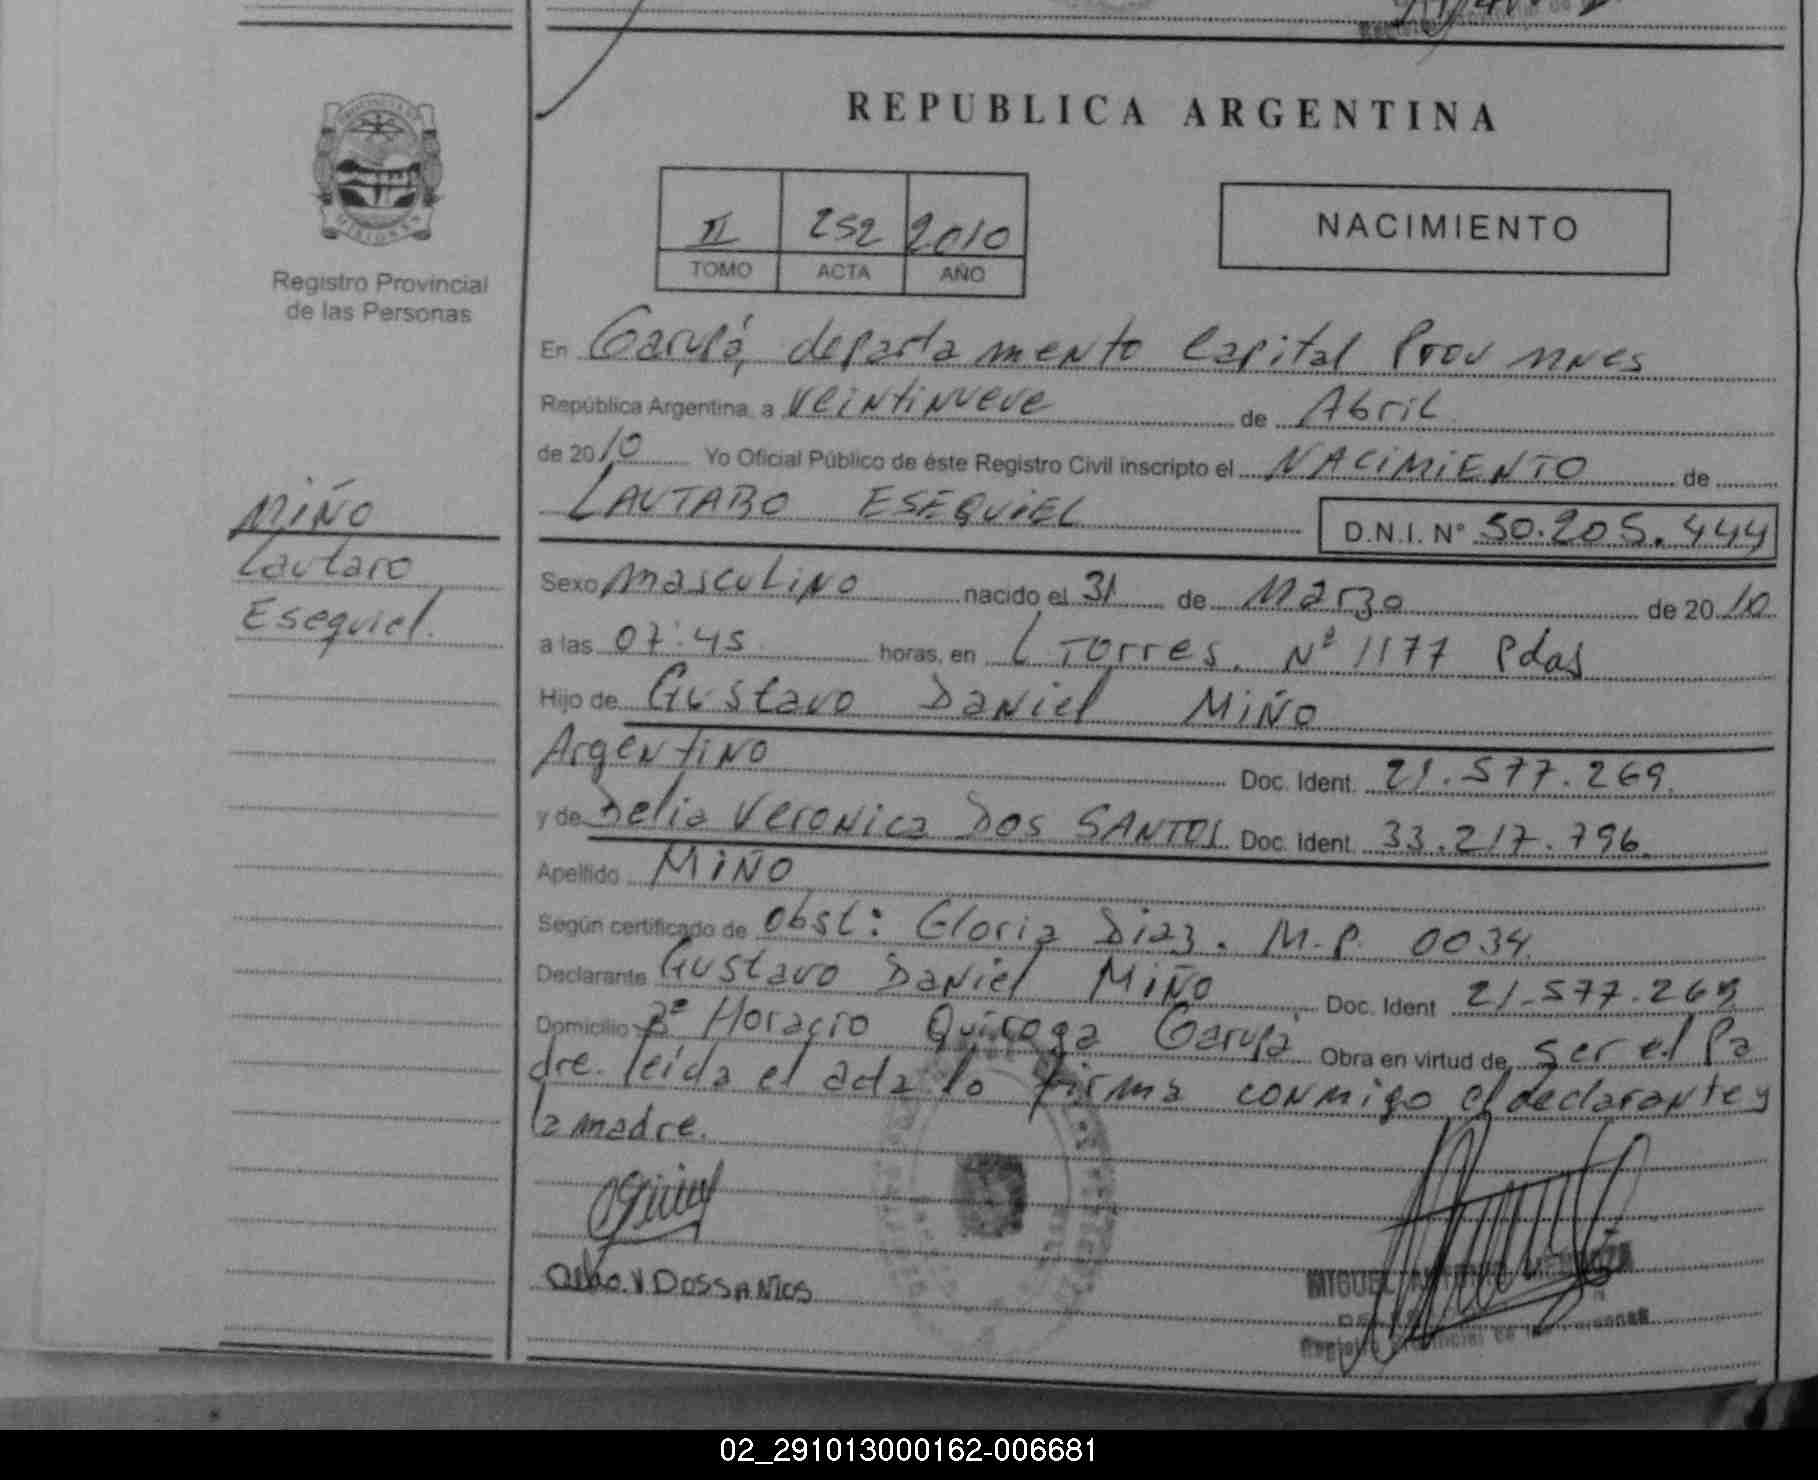 REPUBLICA ARGENTINA
MISIONES
Registro Provincial
de las Personas
II 252 2010
TOMO ACTA AÑO
NACIMIENTO
En Garupá, departamento Capital Prov Mnes
República Argentina, a veintinueve de Abril
de 2010 Yo Oficial Público de éste Registro Civil inscripto el NACIMIENTO de
LAUTARO ESEQUIEL D.N.I. Nº 50.205.444
MIÑO
Lautaro
Esequiel.
Sexo masculino nacido el 31 de Marzo de 2010
a las 07:45 horas, en L Torres. Nº 1177 Pdas
Hijo de Gustavo Daniel MIÑO
Argentino Doc. Ident. 21.577.269.
y de Delia Veronica DOS SANTOS Doc. Ident. 33.217.796.
Apellido MIÑO
Según certificado de obst: Gloria Diaz. M.P. 0034.
Declarante Gustavo Daniel MIÑO Doc. Ident 21.577.269
Domicilio Bº Horacio Quiroga Garupá Obra en virtud de ser el Pa
dre. leída el acta lo firma conmigo el declarante y
la madre.
V DOSSANTOS
MIGUEL
Registro Provincial de las Personas
02_291013000162-006681